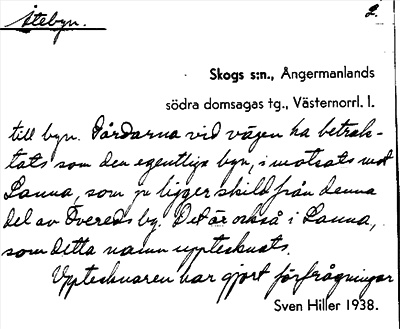 Åtebyn.
2.
Skogs s:n., Ångermanlands
södra domsagas tg., Västernorrl. l.
till byn. Gårdarna vid vägen ha betrak-
tats som den egentliga byn, i motsats mot
Lanna, som ju ligger skild från denna
del av Övereds by. Det är också i Lanna,
som detta namn upptecknats.
Upptecknaren har gjort förfrågningar
Sven Hiller 1938.